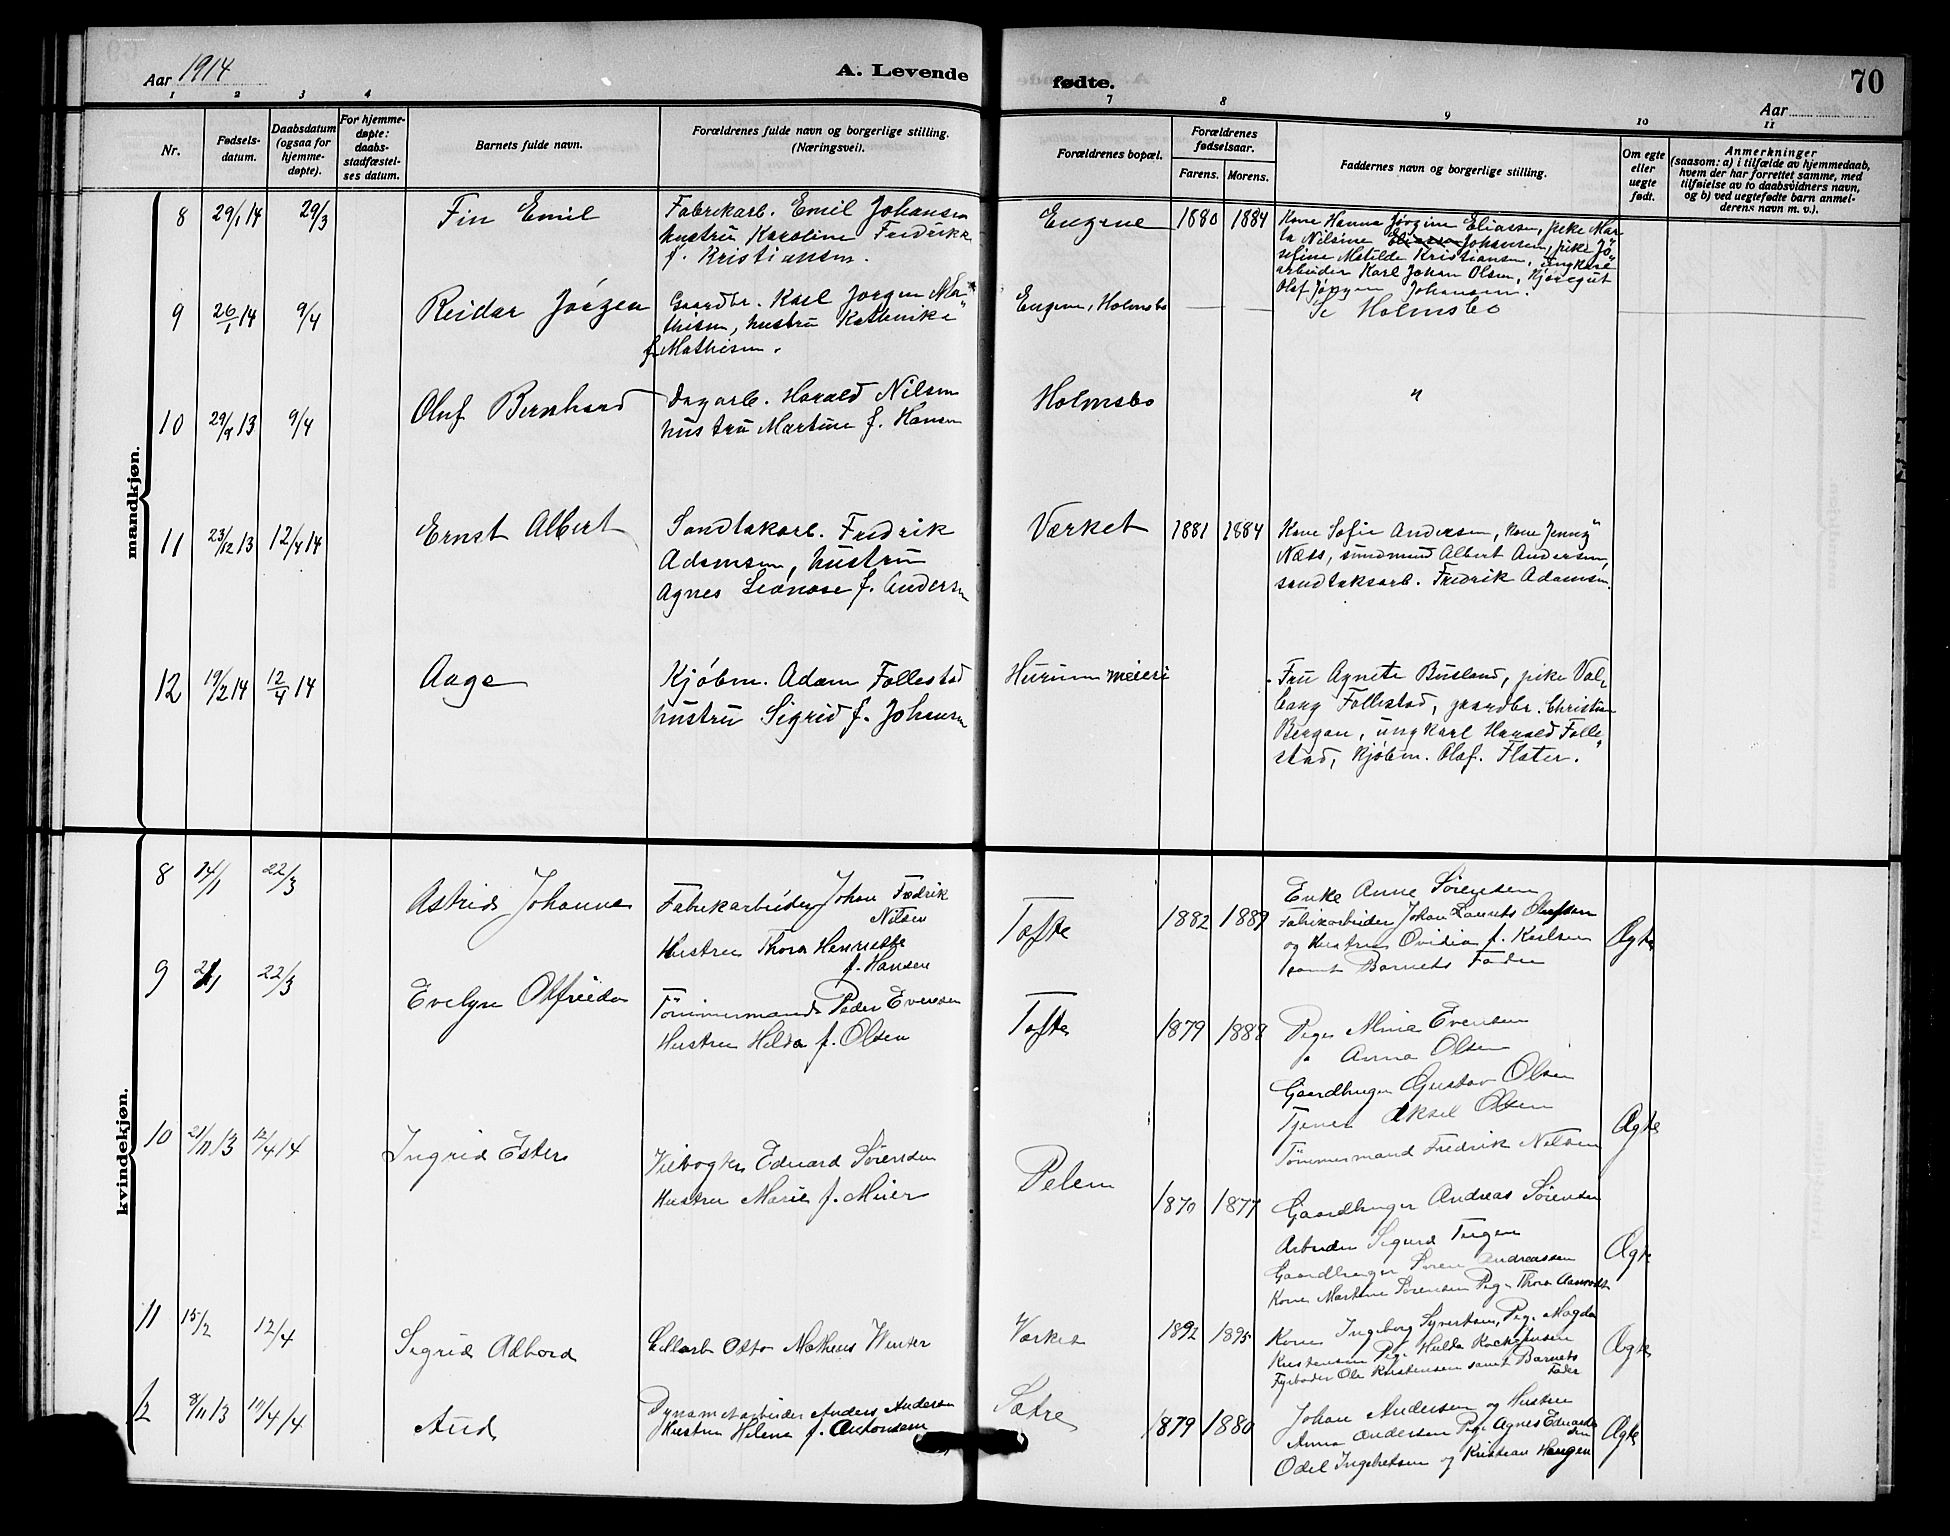 Aar 1914
A. Levende
fødte.
70
Aar
1 2 3 4
7 8 9 10 11
Nr.
Fødsels-
datum.
Daabsdatum
(ogsaa for
hjemme-
døpte).
For hjemme-
døpte:
daabs-
stadfæstel-
ses datum.
Barnets fulde navn.
Forældrenes fulde navn og borgerlige stilling.
(Næringsveil).
Forældrenes bopæl.
Forældrenes
fødselsaar.
Farens. Morens.
Faddernes navn og borgerlige stilling.
Om egte
eller
uegte
født.
Anmerkninger
(saasom: a) i tilfælde av hjemmedaab,
hvem der har forrettet samme, med
tilføielse av to daabsvidners navn,
og b) ved uegtefødte barn anmel-
derens navn m. v.).
mandkjøn.
8 29/1 14 29/3 Fin Emil
Fabrikarb. Emil Johansen
hustru Karoline Fredrikke
f. Kristiansen.
Eugene 1880 1884
Kone Hanna Jørgine Eliassen, pike Mar-
ta Nilsine Johansen, pike Jo"
sefine Matilde Kristiansen, ungkarl
arbeider Karl Johan Olsen,
Olaf Jørgen Johansen.
9 26/1 14 9/4 Reidar Jørgen
Gaardbr. Karl Jørgen Ma"
thisen, hustru
f. Mathisen.
Eugene, Holmsbo
Se Holmsbo
10 29/9 13 9/4 Oluf Bernhard
Dagarb. Harald Nilsen
hustru Martine f. Hansen
Holmsbo
"
11 23/12 13 12/4 14 Ernst Albert
Sandtakarb. Fredrik
Adamsen, hustru
Agnes Leonore f. Andersen
Værket 1881 1884
Kone Sofie Andersen, kone Jenny
Næss, Albert Andersen,
sandtaksarb. Fredrik Adamsen.
12 19/2 14 12/4 14 Aage
Kjøbm. Adam Follestad
hustru Sigrid f. Johansen
Hurum meieri
Fru Agnete Busland, pike Val-
borg Follestad, gaardbr. Christian
Bergan, ungkarl Harald Folle"
stad, kjøbm. Olaf. Flater.
kvindekjøn.
8 14/1 22/3 Astrid Johanne
Fabrikarbeider Johan Fredrik
Nilsen
Hustru Thora Henriette
f. Hansen
Tofte 1882 1889
Enke Anne Sørensen
Fabrikarbeider Johan Laurits Olufsen
og Hustru Ovidia f. Karlsen
samt Barnets Fader
Ægte
9 22/3
Evelyn Olfrida
Tømmermand Peder Evensen
Hustru Hilda f. Olsen
Tofte 1879 1888
Pige Alma Evensen
" Anna Olsen
Gaardbruger Gustav Olsen
Tjener Aksel Olsen
Tømmermand Fredrik Nilsen
Ægte
10 21/11 13 12/4 14 Ingrid Ester
Eduard Sørensen
Hustru Marie f. Meier
Pelem
1870 1877
Gaardbruger Andreas Sørensen
Arbeider Sigurd
Gaardbruger Søren Andreassen
Kone Martine Sørensen Pige Thora
Ægte
11 15/2 12/4 Sigrid Adbord
Otto Matheus Winter
Værket 1892 1895
Kone Ingeborg Syvertsen, Pige Magda
Kristensen Pige Hulda
Fyrbøder Ole Kristensen samt Barnets
Fader
Ægte
12 8/11 13 14 Aud
Dynamitarbeider Anders Andersen
Hustru Helena f. Antonsen
Sætre 1879 1880
Johan Andersen og Hustru
Anna Andersen Pige Agnes Eduard-
sen
Odel Ingebretsen og Kristian Haugen
Ægte